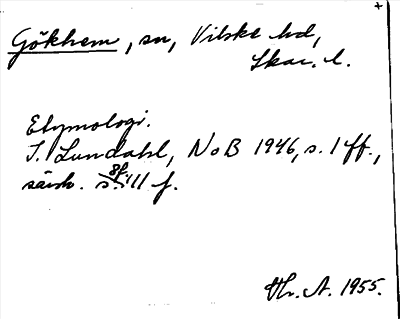 Gökhem, sn, Vilske hd,
Skar. l.
Etymologi.
I. Lundahl, NoB 1946, s. 1 ff.,
särsk. s. 8f, 11 f.
Hr. A. 1955.